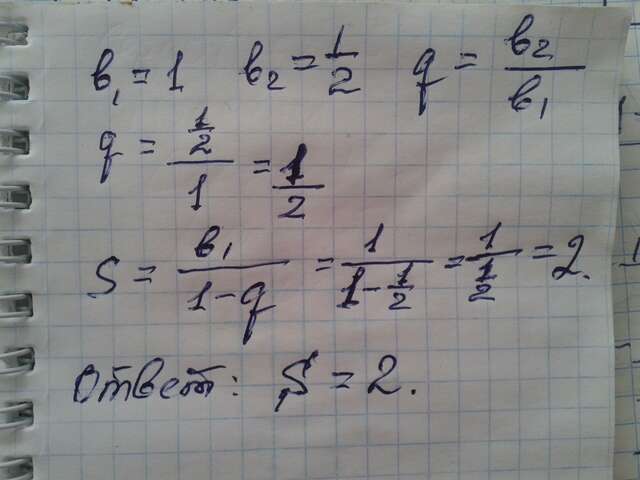 в₁ = 1 в₂ = 1/2 q = в₂/в₁
q = (1/2)/1 = 1/2
S = в₁/(1-q) = 1/(1-1/2) = 1/(1/2) = 2.
Ответ: S = 2.